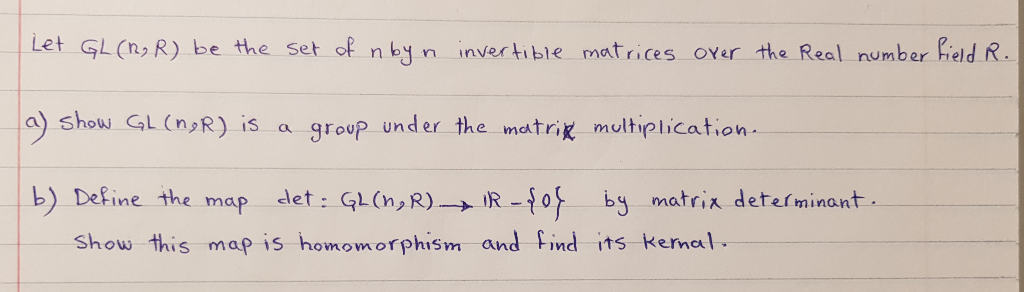 Let GL(n,R) be the set of n by n invertible matrices over the Real number field R.
a) Show GL(n,R) is a group under the matrix multiplication.
b) Define the map det: GL(n,R) → ℝ - {0} by matrix determinant.
Show this map is homomorphism and find its kernal.